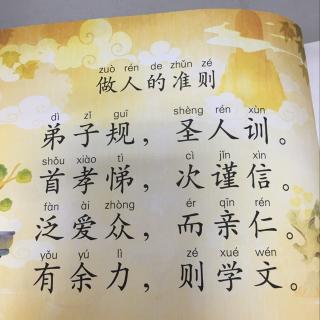 zuò rén de zhǔn zé
做人的准则
dì zǐ guī shèng rén xùn
弟子规，圣人训。
shǒu xiào tì cì jǐn xìn
首孝悌，次谨信。
fàn ài zhòng ér qīn rén
泛爱众，而亲仁。
yǒu yú lì zé xué wén
有余力，则学文。